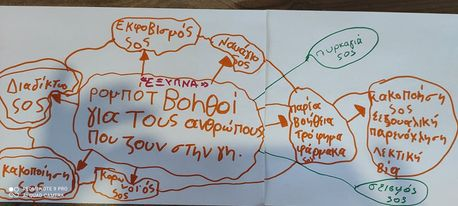 Εκφοβισμός
sos
Ναυάγιο
sos
πυρκαγιά
sos
Διαδίκτυο
sos
"ΕΞΥΠΝΑ"
ρομπότ βοηθοί
για τους ανθρώπους
που ζουν στην γη.
παρέα
βοήθεια
τρόφιμα
φάρμακα
sos
κακοποίηση
sos
σεξουαλική
παρενόχληση
λεκτική
βία
κακοποίηση
sos
Κορω
νοιός
sos
σεισμός
sos
REDMI NOTE 8 PRO
AI QUAD CAMERA